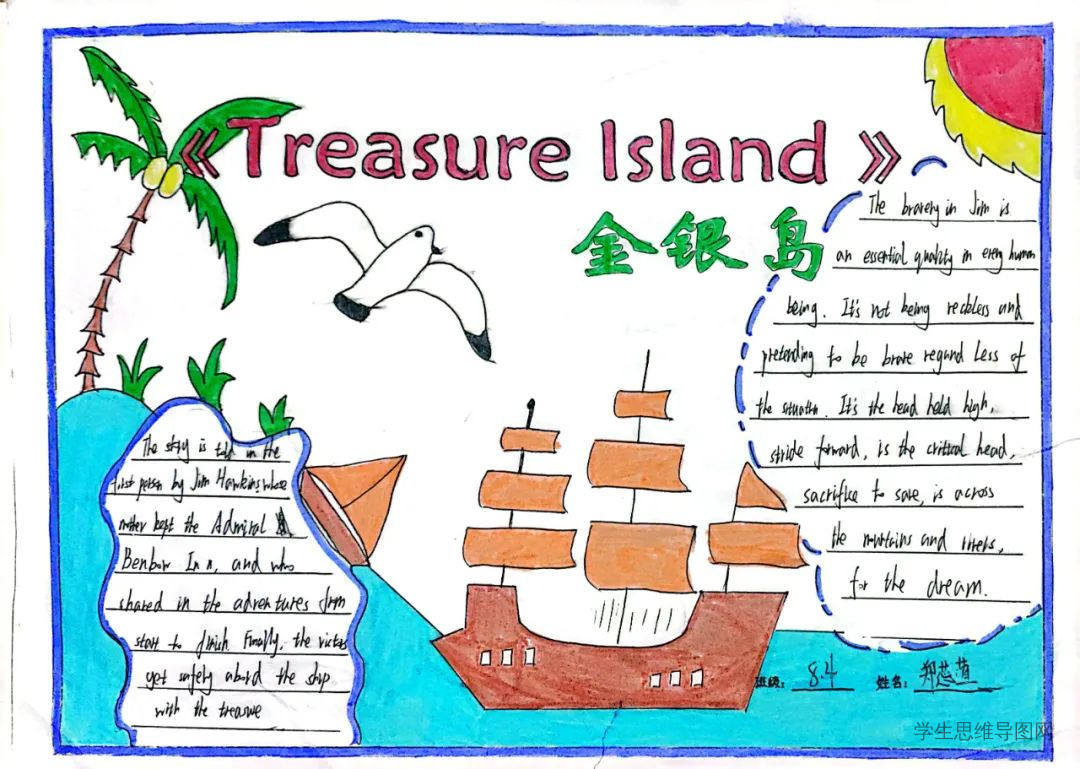 《Treasure Island》
金银岛
The bravery in Jim is
an essential quality in every human
being. It's not being reckless and
pretending to be brave regard less of
the situatin. It's the head held high,
stride forward, is the critical head,
sacrifice to save, is across
the mountains and rivers,
for the dream.
The story is told in the
first person by Jim Hawkins, whose
mother kept the Admiral
Benbow Inn, and who
shared in the adventures from
start to finish Finally, the victors
get safely abord the ship
with the treasure
班级: 8.4 姓名:
学生思维导图网